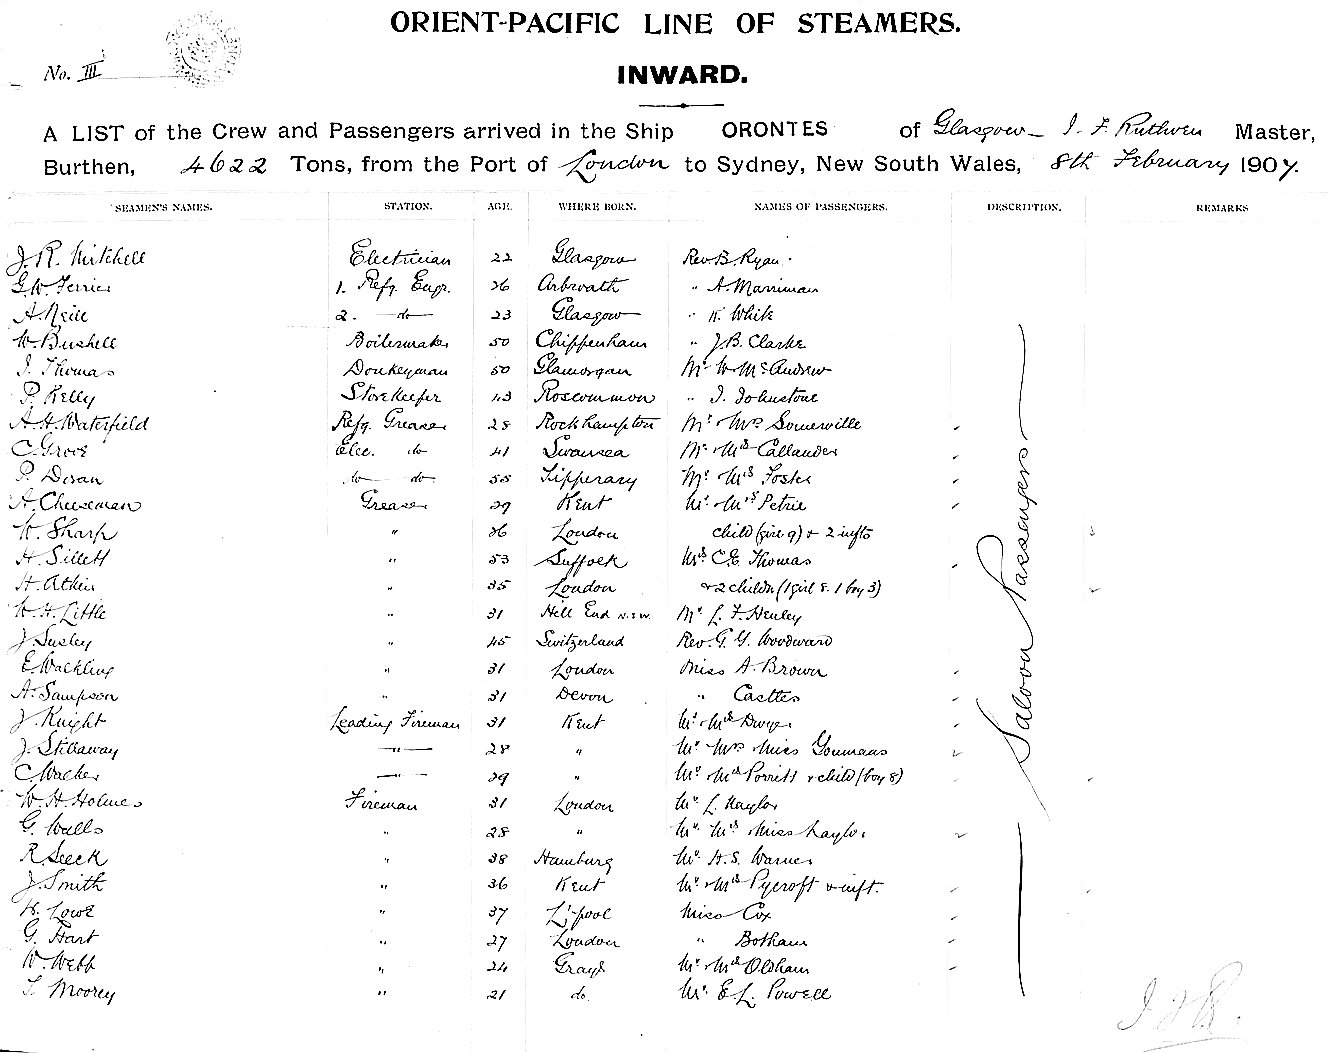 ORIENT-PACIFIC LINE OF STEAMERS.
No. III
INWARD.
A LIST of the Crew and Passengers arrived in the Ship ORONTES of Glasgow I F Ruthven Master,
Burthen, 4622 Tons, from the Port of London to Sydney, New South Wales, 8th February 1907.
SEAMEN'S NAMES. STATION. AGE. WHERE BORN. NAMES OF PASSENGERS. DESCRIPTION. REMARKS
J. R. Mitchell Electrician 22 Glasgow Rev B. Ryan
G. W. Ferrier 1. Refg. Engr. 26 Arbroath " A Marriman
A Neill 2. do 23 Glasgow " K White
W. Bushell Boilermaker 50 Chippenham " J. B. Clarke
J. Thomas Donkeyman 50 Glamorgan Mr W McAndrew
P. Kelly Storekeeper 43 Roscommon " I. Johnstone
A. H. Waterfield Refg. Greaser 28 Rockhampton Mr Mrs Somerville
C Grove Elec. do 41 Swansea Mr Mrs Callander
P. Doran do do 55 Tipperary Mr Mrs Foster
A. Cheeseman Greaser 29 Kent Mr Mrs Petrie
W. Sharp " 26 London child (girl 9) + 2 infts
H. Sillett " 53 Suffolk Mrs C. E. Thomas
H. Atkin " 35 London + 2 childn (1 girl 8. 1 boy 3)
W. H. Little " 31 Hill End N.S.W. Mr L. F. Henley
J. Susley " 45 Switzerland Rev. G. G. Woodward
E. Wackling " 31 London Miss A. Brown
A. Sampson " 31 Devon " Castles
J. Knight Leading Fireman 31 Kent Mr Mrs Dwyer
J. Stillaway " 28 " Mr Mrs Miss Youmans
C Walker " 29 " Mr Mrs Porritt + child (boy 8)
W. H. Holmes Fireman 31 London Mr L. Naylor
G. Walls " 28 " Mr Mrs Miss Naylor
R. Seeck " 38 Hamburg Mr H. S. Warner
J. Smith " 36 Kent Mr Mrs Pycroft + inft.
H. Lowe " 37 L'pool Miss Cox
G. Hart " 27 London " Botham
W. Webb " 24 Grays Mr Mrs Oldham
T. Moorey " 21 do. Mr. E L. Powell
Saloon Passengers